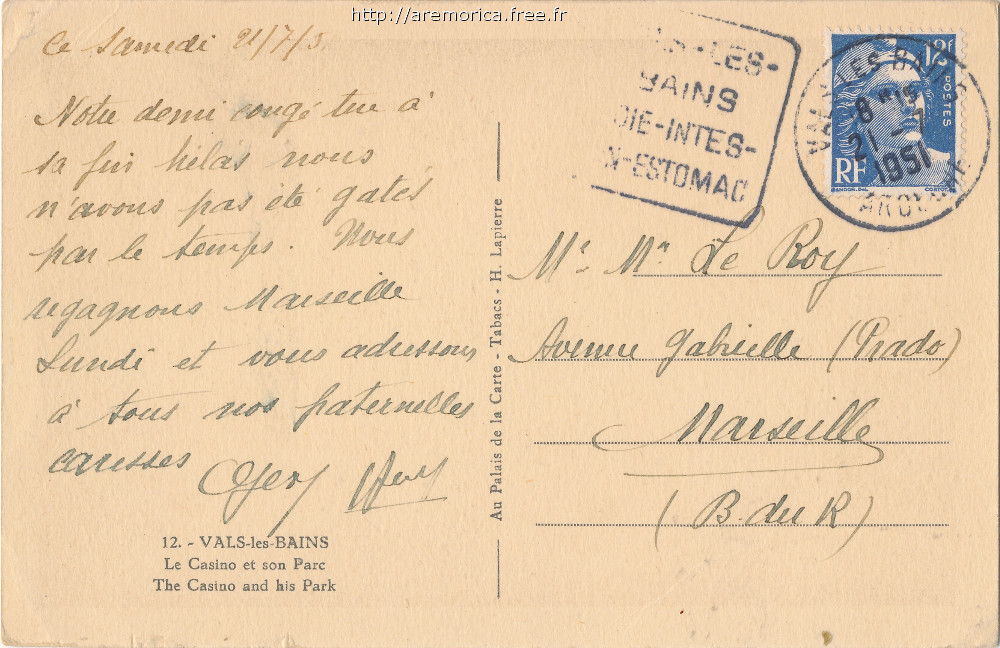 http://aremorica.free.fr
Ce Samedi 21/7/5
Notre demi congé tire à
sa fin hélas nous
n'avons pas été gatés
par le temps. Nous
regagnons Marseille
Lundi et vous adressons
à tous nos paternelles
caresses
12. - VALS-les-BAINS
Le Casino et son Parc
The Casino and his Park
Au Palais de la Carte - Tabacs - H. Lapierre
-LES-
BAINS
OIE-INTES-
N-ESTOMAC
VALS LES BAINS
8H15
21-7
1951
ARDECHE
12F
POSTES
RF
GANDON
Mr. Mr. Le Roy
Avenue Gabrielle (Prado)
Marseille
(B. du R)